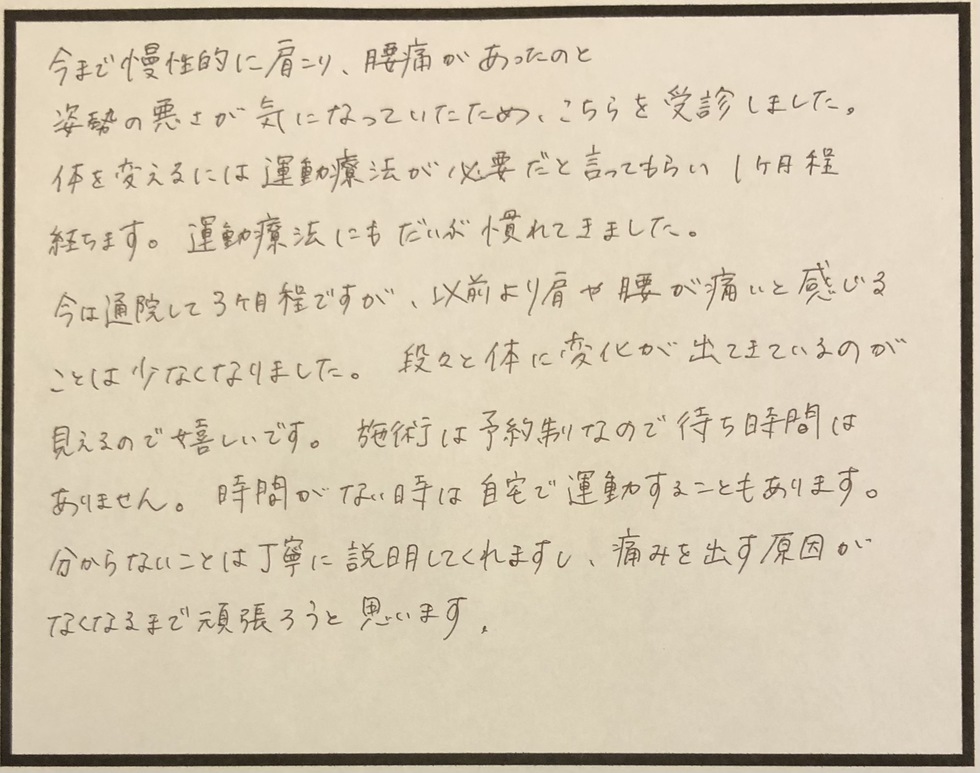 今まで慢性的に肩こり、腰痛があったのと
姿勢の悪さが気になっていたため、こちらを受診しました。
体を変えるには運動療法が必要だと言ってもらい1ヶ月程
経ちます。運動療法にもだいぶ慣れてきました。
今は通院して3ヶ月程ですが、以前より肩や腰が痛いと感じる
ことは少なくなりました。段々と体に変化が出てきているのが
見えるので嬉しいです。施術は予約制なので待ち時間は
ありません。時間がない時は自宅で運動することもあります。
分からないことは丁寧に説明してくれますし、痛みを出す原因が
なくなるまで頑張ろうと思います。